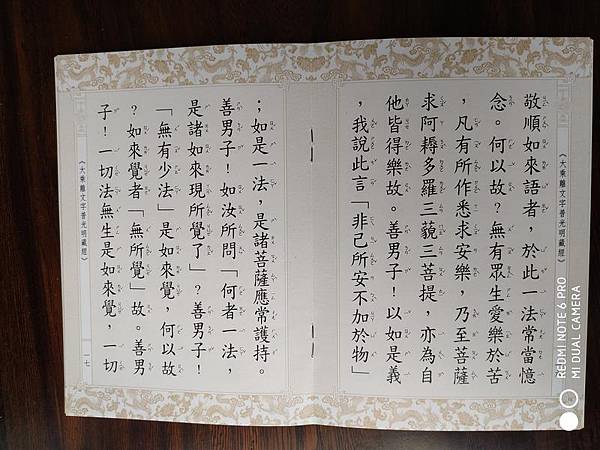 敬順如來語者，於此一法常當憶
念。何以故？無有眾生愛樂於苦
，凡有所作悉求安樂，乃至菩薩
求阿耨多羅三藐三菩提，亦為自
他皆得樂故。善男子！以如是義
，我說此言「非己所安不加於物」
；如是一法，是諸菩薩應常護持。
善男子！如汝所問「何者一法，
是諸如來現所覺了」？善男子！
「無有少法」是如來覺，何以故
？如來覺者「無所覺」故。善男
子！一切法無生是如來覺，一切
《大乘離文字普光明藏經》
《大乘離文字普光明藏經》
一七
REDMI NOTE 6 PRO
MI DUAL CAMERA